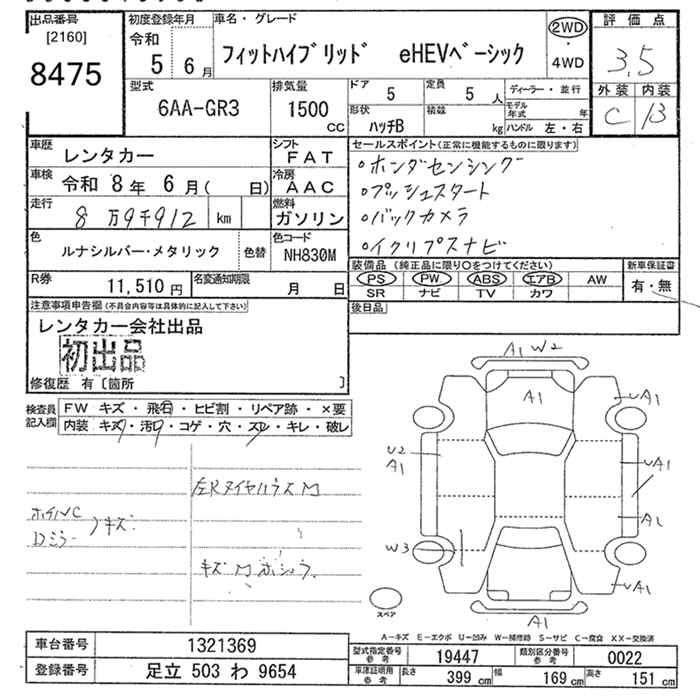 出品番号
[2160]
8475
初度登録年月
令和
5 6月
車名・グレード
フィットハイブリッド eHEVベーシック
2WD
・
4WD
評価点
3.5
外装 内装
C B
型式
6AA-GR3
排気量
1500
CC
ドア
5
定員
5
人
形状
ハッチB
積載
kg
ディーラー・並行
モデル年式
年
ハンドル 左・右
車歴
レンタカー
シフト
FAT
車検
令和 8年 6月( 日)
冷房
AAC
走行
8万9千912
km
燃料
ガソリン
色
ルナシルバー・メタリック
色替
色コード
NH830M
R券
11,510 円
名変通知期限
月 日
セールスポイント(正常に機能するものに限ります)
・ホンダセンシング
・プッシュスタート
・バックカメラ
・イクリプスナビ
装備品 (純正品に限り○をつけてください)
PS PW ABS エアB AW
SR ナビ TV カワ
新車保証書
有・無
後日品
注意事項申告欄(不具合内容等は具体的に記入して下さい)
レンタカー会社出品
初出品
修復歴 有〔箇所 〕
検査員
記入欄
FW キズ・飛石・ヒビ割・リペア跡・×要
内装 キズ・汚れ・コゲ・穴・スレ・キレ・破レ
左Rタイヤハウス M
ホイルC
Dミラー
キズ
キズ M
A1 W2
A1
UA1
U2
A1
UA1
A1
W3
UA1
A1
スペア
A-キズ E-エクボ U-凹み W-補修跡 S-サビ C-腐食 XX-交換済
車台番号
1321369
登録番号
足立 503 わ 9654
型式指定番号
参考
19447
類別区分番号
参考
0022
車庫証明用
参考
長さ
399 cm
幅
169 cm
高さ
151 cm